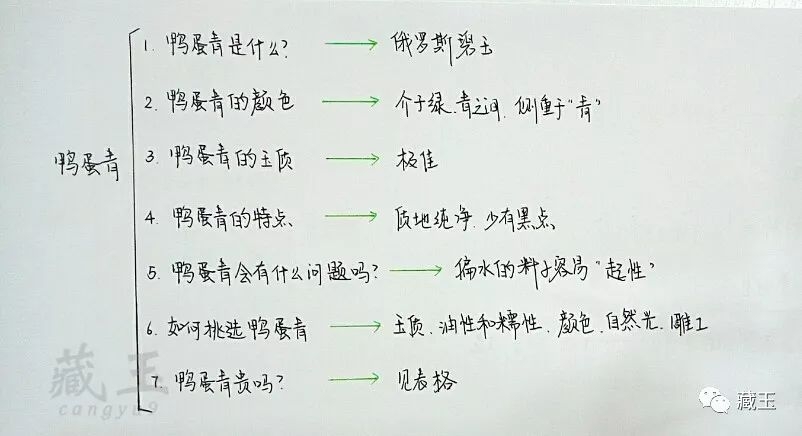 1. 鸭蛋青是什么? → 俄罗斯碧玉
2. 鸭蛋青的颜色 → 介于绿、青之间、侧重于“青”
鸭蛋青
3. 鸭蛋青的玉质 → 极佳
4. 鸭蛋青的特点 → 质地纯净、少有黑点
5. 鸭蛋青会有什么问题吗? → 偏水的料子容易“起性”
6. 如何挑选鸭蛋青 → 玉质、油性和糯性、颜色、自然光、雕工
7. 鸭蛋青贵吗? → 见表格
藏玉
cangyu9
藏玉